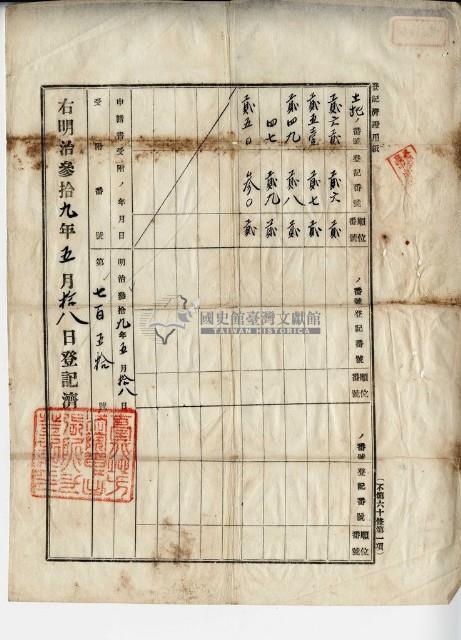 登記濟證用紙
土地ノ番號 登記番號 順位番號
ノ番號 登記番號 順位番號
ノ番號 登記番號 順位番號
貳六貳 貳六 貳
貳五壹 貳七 貳
貳四九 貳八 貳
四七 貳九 貳
貳五〇 參〇 貳
申請書受附ノ年月日 明治參拾九年五月拾八日
受附番號 第七百五拾號
右明治參拾九年五月拾八日登記濟
(不第六十條第一項)
國史館臺灣文獻館
TAIWAN HISTORICA